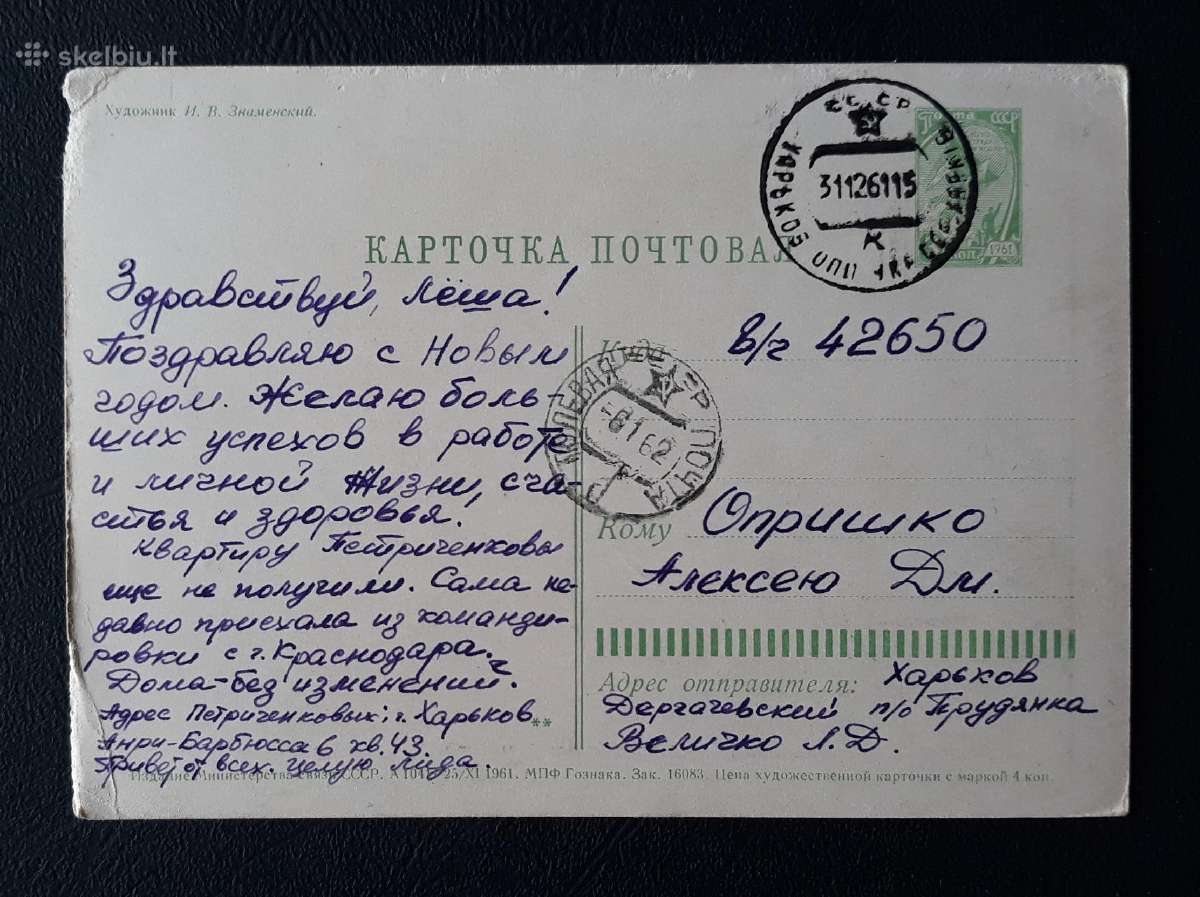 skelbiu.lt
Художник И. В. Знаменский.
СССР
ХАРЬКОВ ППО УКР ССР
31126115
К
Почта СССР
1961
КОП.
КАРТОЧКА ПОЧТОВАЯ
Здравствуй, Лёша!
Поздравляю с Новым
годом. Желаю боль-
ших успехов в работе
и личной жизни, сча-
стья и здоровья!
Квартиру Петриченковы
еще не получили. Сама не-
давно приехала из команди-
ровки с г. Краснодара.
Дома-без изменений.
Адрес Петриченковых: г. Харьков
Анри-Барбюсса 6 кв. 43.
Привет от всех. Целую Лида.
**
Куда в/ч 42650
СССР ПОЛЕВАЯ ПОЧТА
-8 1 62
Кому Опришко
Алексею Дм.
Адрес отправителя: Харьков
Дергачевский п/о Прудянка
Величко Л.Д.
Издание Министерства связи СССР. 25/XI 1961. МПФ Гознака. Зак. 16083. Цена художественной карточки с маркой 4 коп.